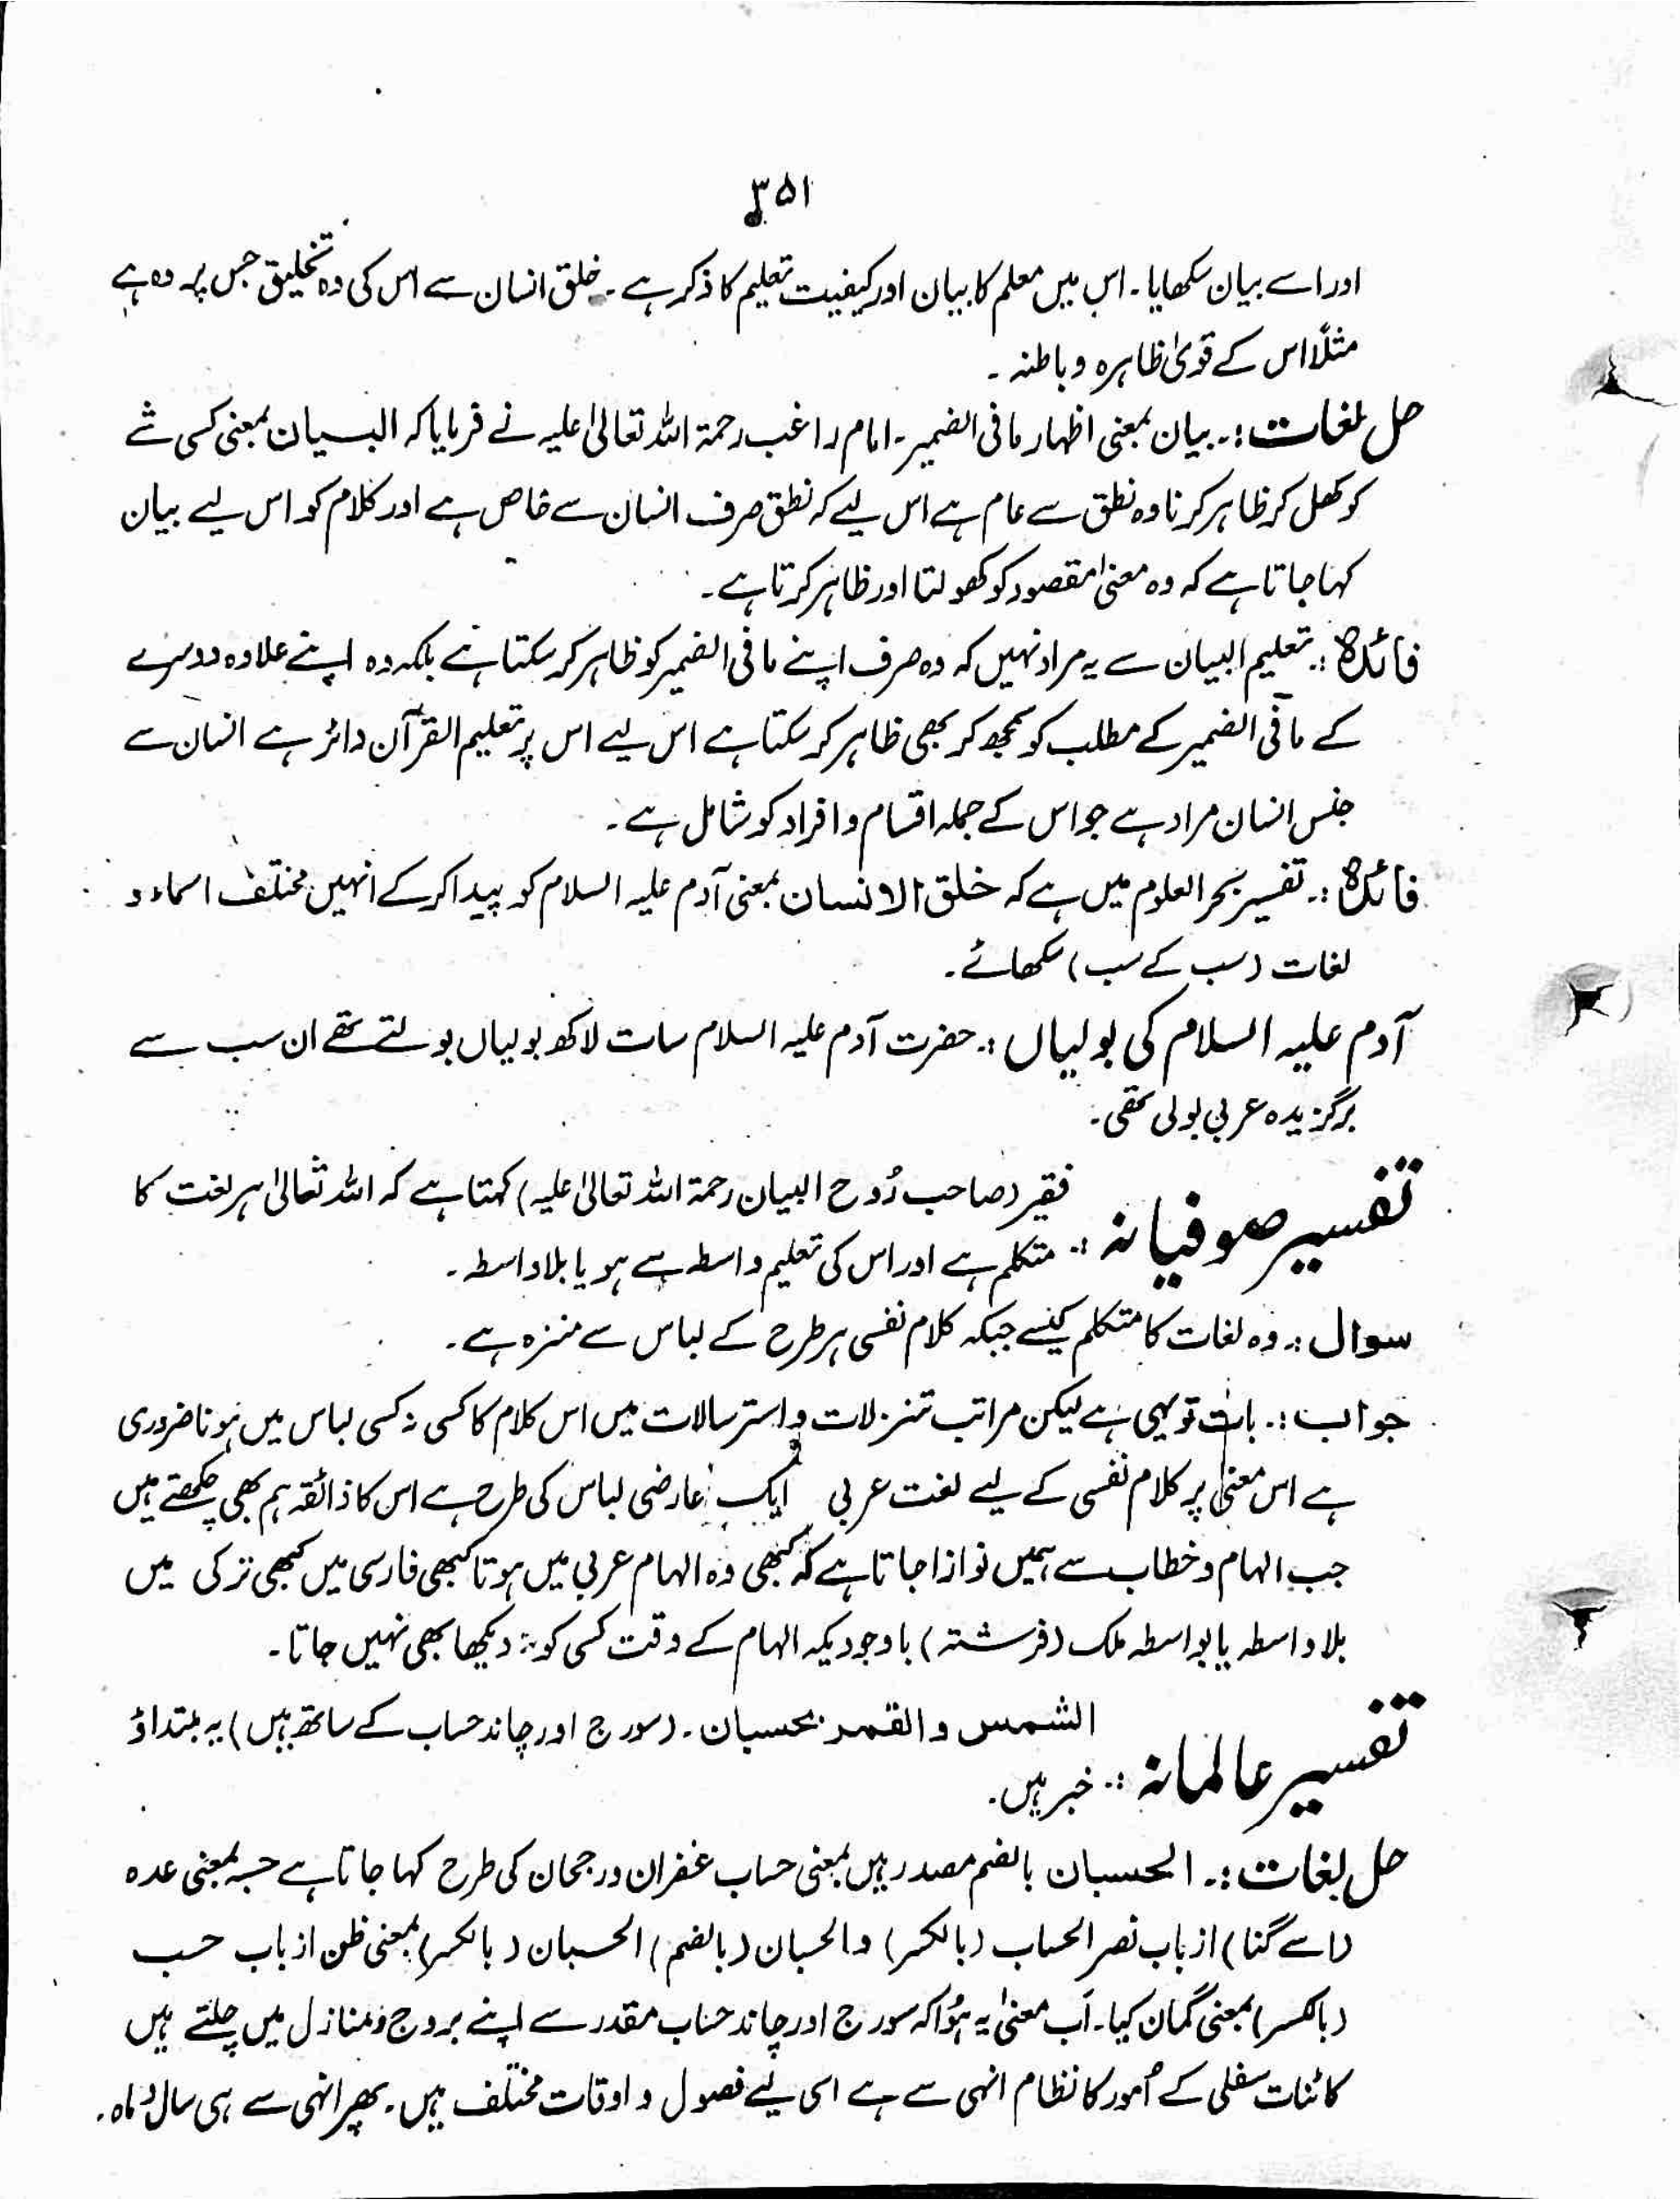 ۳۵۱
اور اسے بیان سکھایا۔ اس میں معلم کا بیان اور کیفیت تعلیم کا ذکر ہے۔ خلق انسان سے اس کی وہ تخلیق جس پر وہ ہے
مثلاً اس کے قویٰ ظاہرہ و باطنہ۔
حل لغات :۔ بیان بمعنی اظہار مافی الضمیر۔ امام راغب رحمۃ اللہ تعالیٰ علیہ نے فرمایا کہ البیان بمعنی کسی شے
کو کھل کر ظاہر کرنا وہ نطق سے عام ہے اس لیے کہ نطق صرف انسان سے خاص ہے اور کلام کو اس لیے بیان
کہا جاتا ہے کہ وہ معنیٰ مقصود کو کھولتا اور ظاہر کرتا ہے۔
فائدہ :۔ تعلیم البیان سے یہ مراد نہیں کہ وہ صرف اپنے مافی الضمیر کو ظاہر کر سکتا ہے بلکہ وہ اپنے علاوہ دوسرے
کے مافی الضمیر کے مطلب کو سمجھ کر بھی ظاہر کر سکتا ہے اس لیے اس پر تعلیم القرآن دائر ہے انسان سے
جنس انسان مراد ہے جو اس کے جملہ اقسام و افراد کو شامل ہے۔
فائدہ :۔ تفسیر بحر العلوم میں ہے کہ خلق الانسان بمعنی آدم علیہ السلام کو پیدا کر کے انہیں مختلف اسماء و
لغات (سب کے سب) سکھائے۔
آدم علیہ السلام کی بولیاں :۔ حضرت آدم علیہ السلام سات لاکھ بولیاں بولتے تھے ان سب سے
برگزیدہ عربی بولی تھی۔
تفسیر صوفیانہ :۔ فقیر (صاحب رُوح البیان رحمۃ اللہ تعالیٰ علیہ) کہتا ہے کہ اللہ تعالیٰ ہر لغت کا
متکلم ہے اور اس کی تعلیم واسطہ سے ہو یا بلا واسطہ۔
سوال :۔ وہ لغات کا متکلم کیسے جبکہ کلام نفسی ہر طرح کے لباس سے منزہ ہے۔
جواب :۔ بات تو یہی ہے لیکن مراتب تنزلات و استرسالات میں اس کلام کا کسی نہ کسی لباس میں ہونا ضروری
ہے اس معنیٰ پر کلام نفسی کے لیے لغت عربی ایک عارضی لباس کی طرح ہے اس کا ذائقہ ہم بھی چکھتے ہیں
جب الہام و خطاب سے ہمیں نوازا جاتا ہے کہ کبھی وہ الہام عربی میں ہوتا کبھی فارسی میں کبھی ترکی میں
بلا واسطہ یا بواسطہ ملک (فرشتہ) باوجودیکہ الہام کے وقت کسی کو دیکھا بھی نہیں جاتا۔
تفسیر عالمانہ :۔ الشمس والقمر بحسبان۔ (سورج اور چاند حساب کے ساتھ ہیں) یہ مبتداؤ
خبر ہیں۔
حل لغات :۔ الحسبان بالضم مصدر ہیں بمعنی حساب غفران و رجحان کی طرح کہا جاتا ہے حسبہ بمعنی عدہ
(اسے گنا) از باب نصر الحساب (بالکسر) والحسبان (بالضم) الحسبان (بالکسر) بمعنی ظن از باب حسب
(بالکسر) بمعنی گمان کیا۔ اَب معنیٰ یہ ہُوا کہ سورج اور چاند حساب مقدر سے اپنے بروج و منازل میں چلتے ہیں
کائنات سفلی کے اُمور کا نظام انہی سے ہے اسی لیے فصول و اوقات مختلف ہیں۔ پھر انہی سے ہی سال و ماہ،